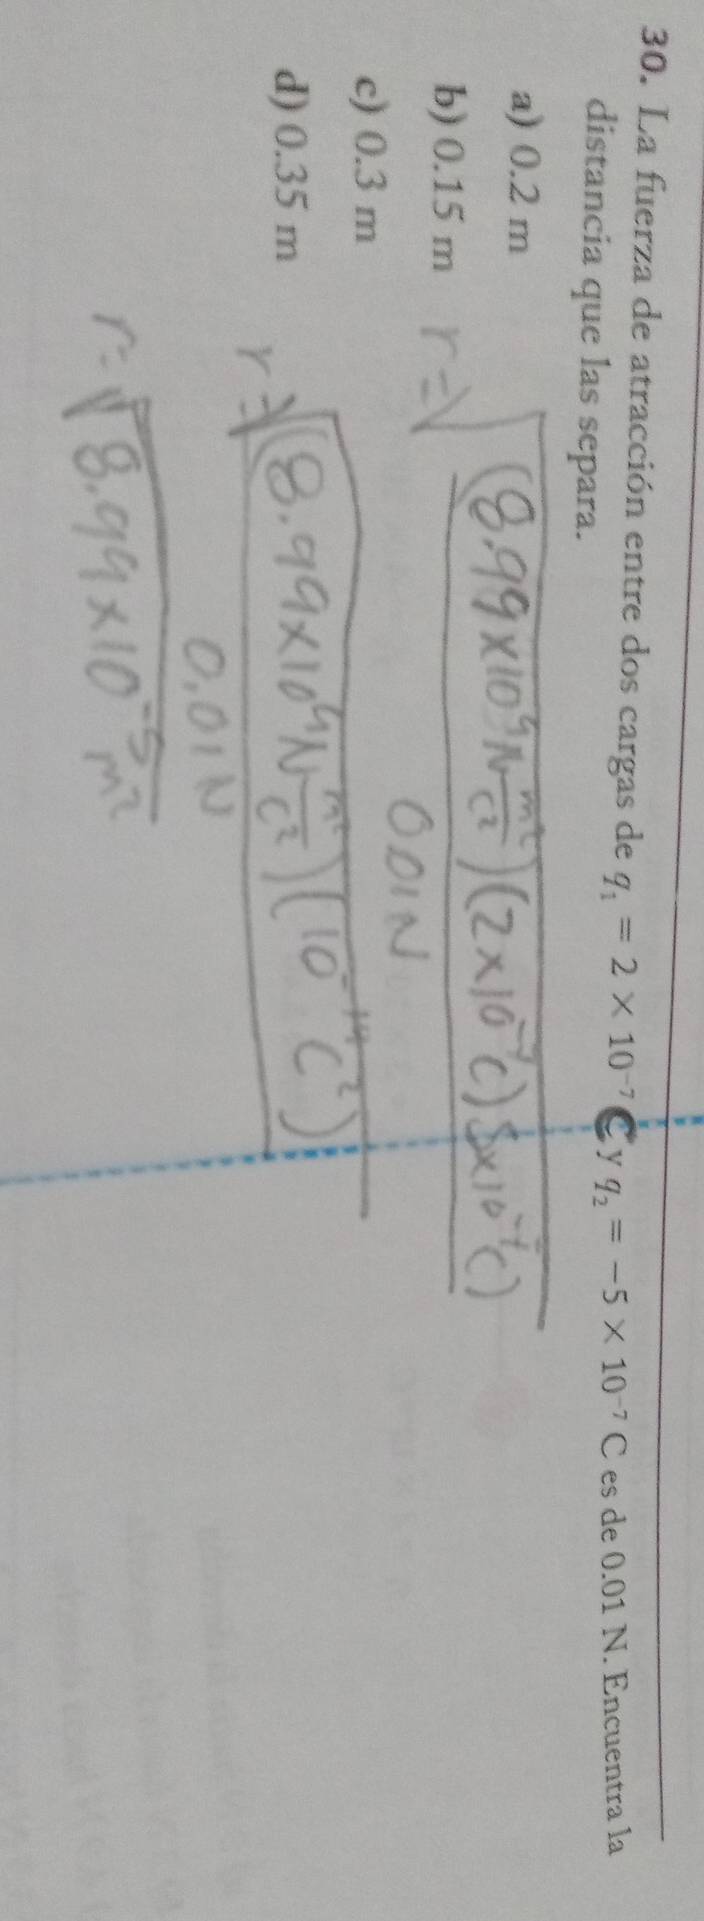 30. La fuerza de atracción entre dos cargas de q₁ = 2 × 10⁻⁷ C y q₂ = −5 × 10⁻⁷ C es de 0.01 N. Encuentra la
distancia que las separa.
a) 0.2 m
b) 0.15 m
c) 0.3 m
d) 0.35 m
r=√(8.99x10⁹N m²/C²)(2x10⁻⁷C)5x10⁻⁷C)
0.01N
r=√(8.99x10⁹N m²/C²)(10⁻¹⁴C²)
0.01N
r=√8.99x10⁻⁵m²